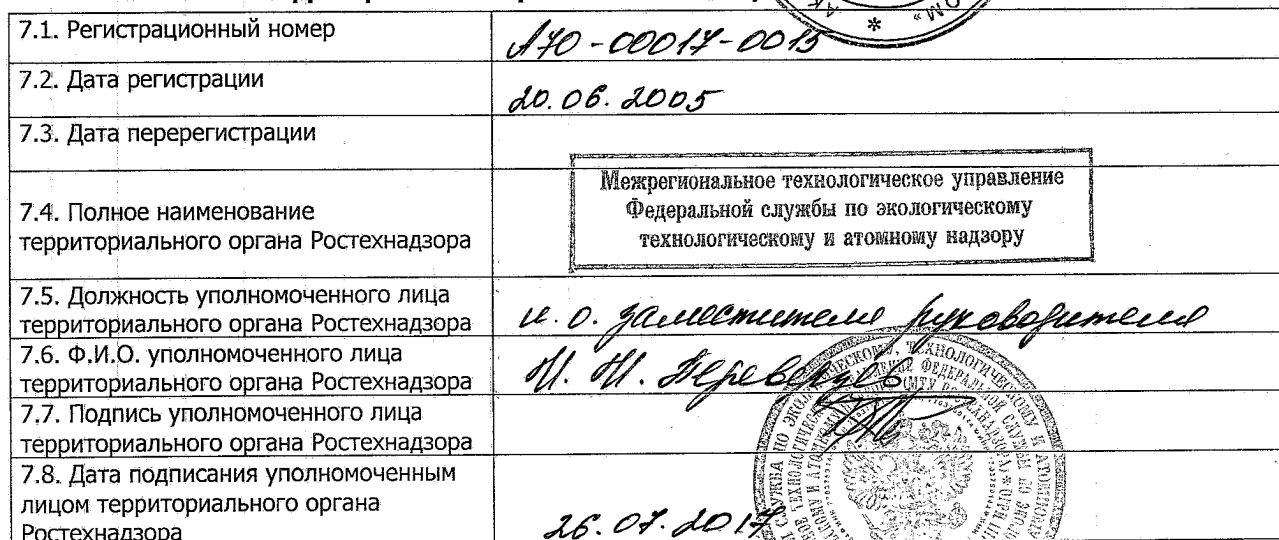 7.1. Регистрационный номер
А70-00017-0015
7.2. Дата регистрации
20.06.2005
7.3. Дата перерегистрации
7.4. Полное наименование
территориального органа Ростехнадзора
Межрегиональное технологическое управление
Федеральной службы по экологическому
технологическому и атомному надзору
7.5. Должность уполномоченного лица
территориального органа Ростехнадзора
и.о. заместителя руководителя
7.6. Ф.И.О. уполномоченного лица
территориального органа Ростехнадзора
7.7. Подпись уполномоченного лица
территориального органа Ростехнадзора
7.8. Дата подписания уполномоченным
лицом территориального органа
Ростехнадзора
26.07.2017